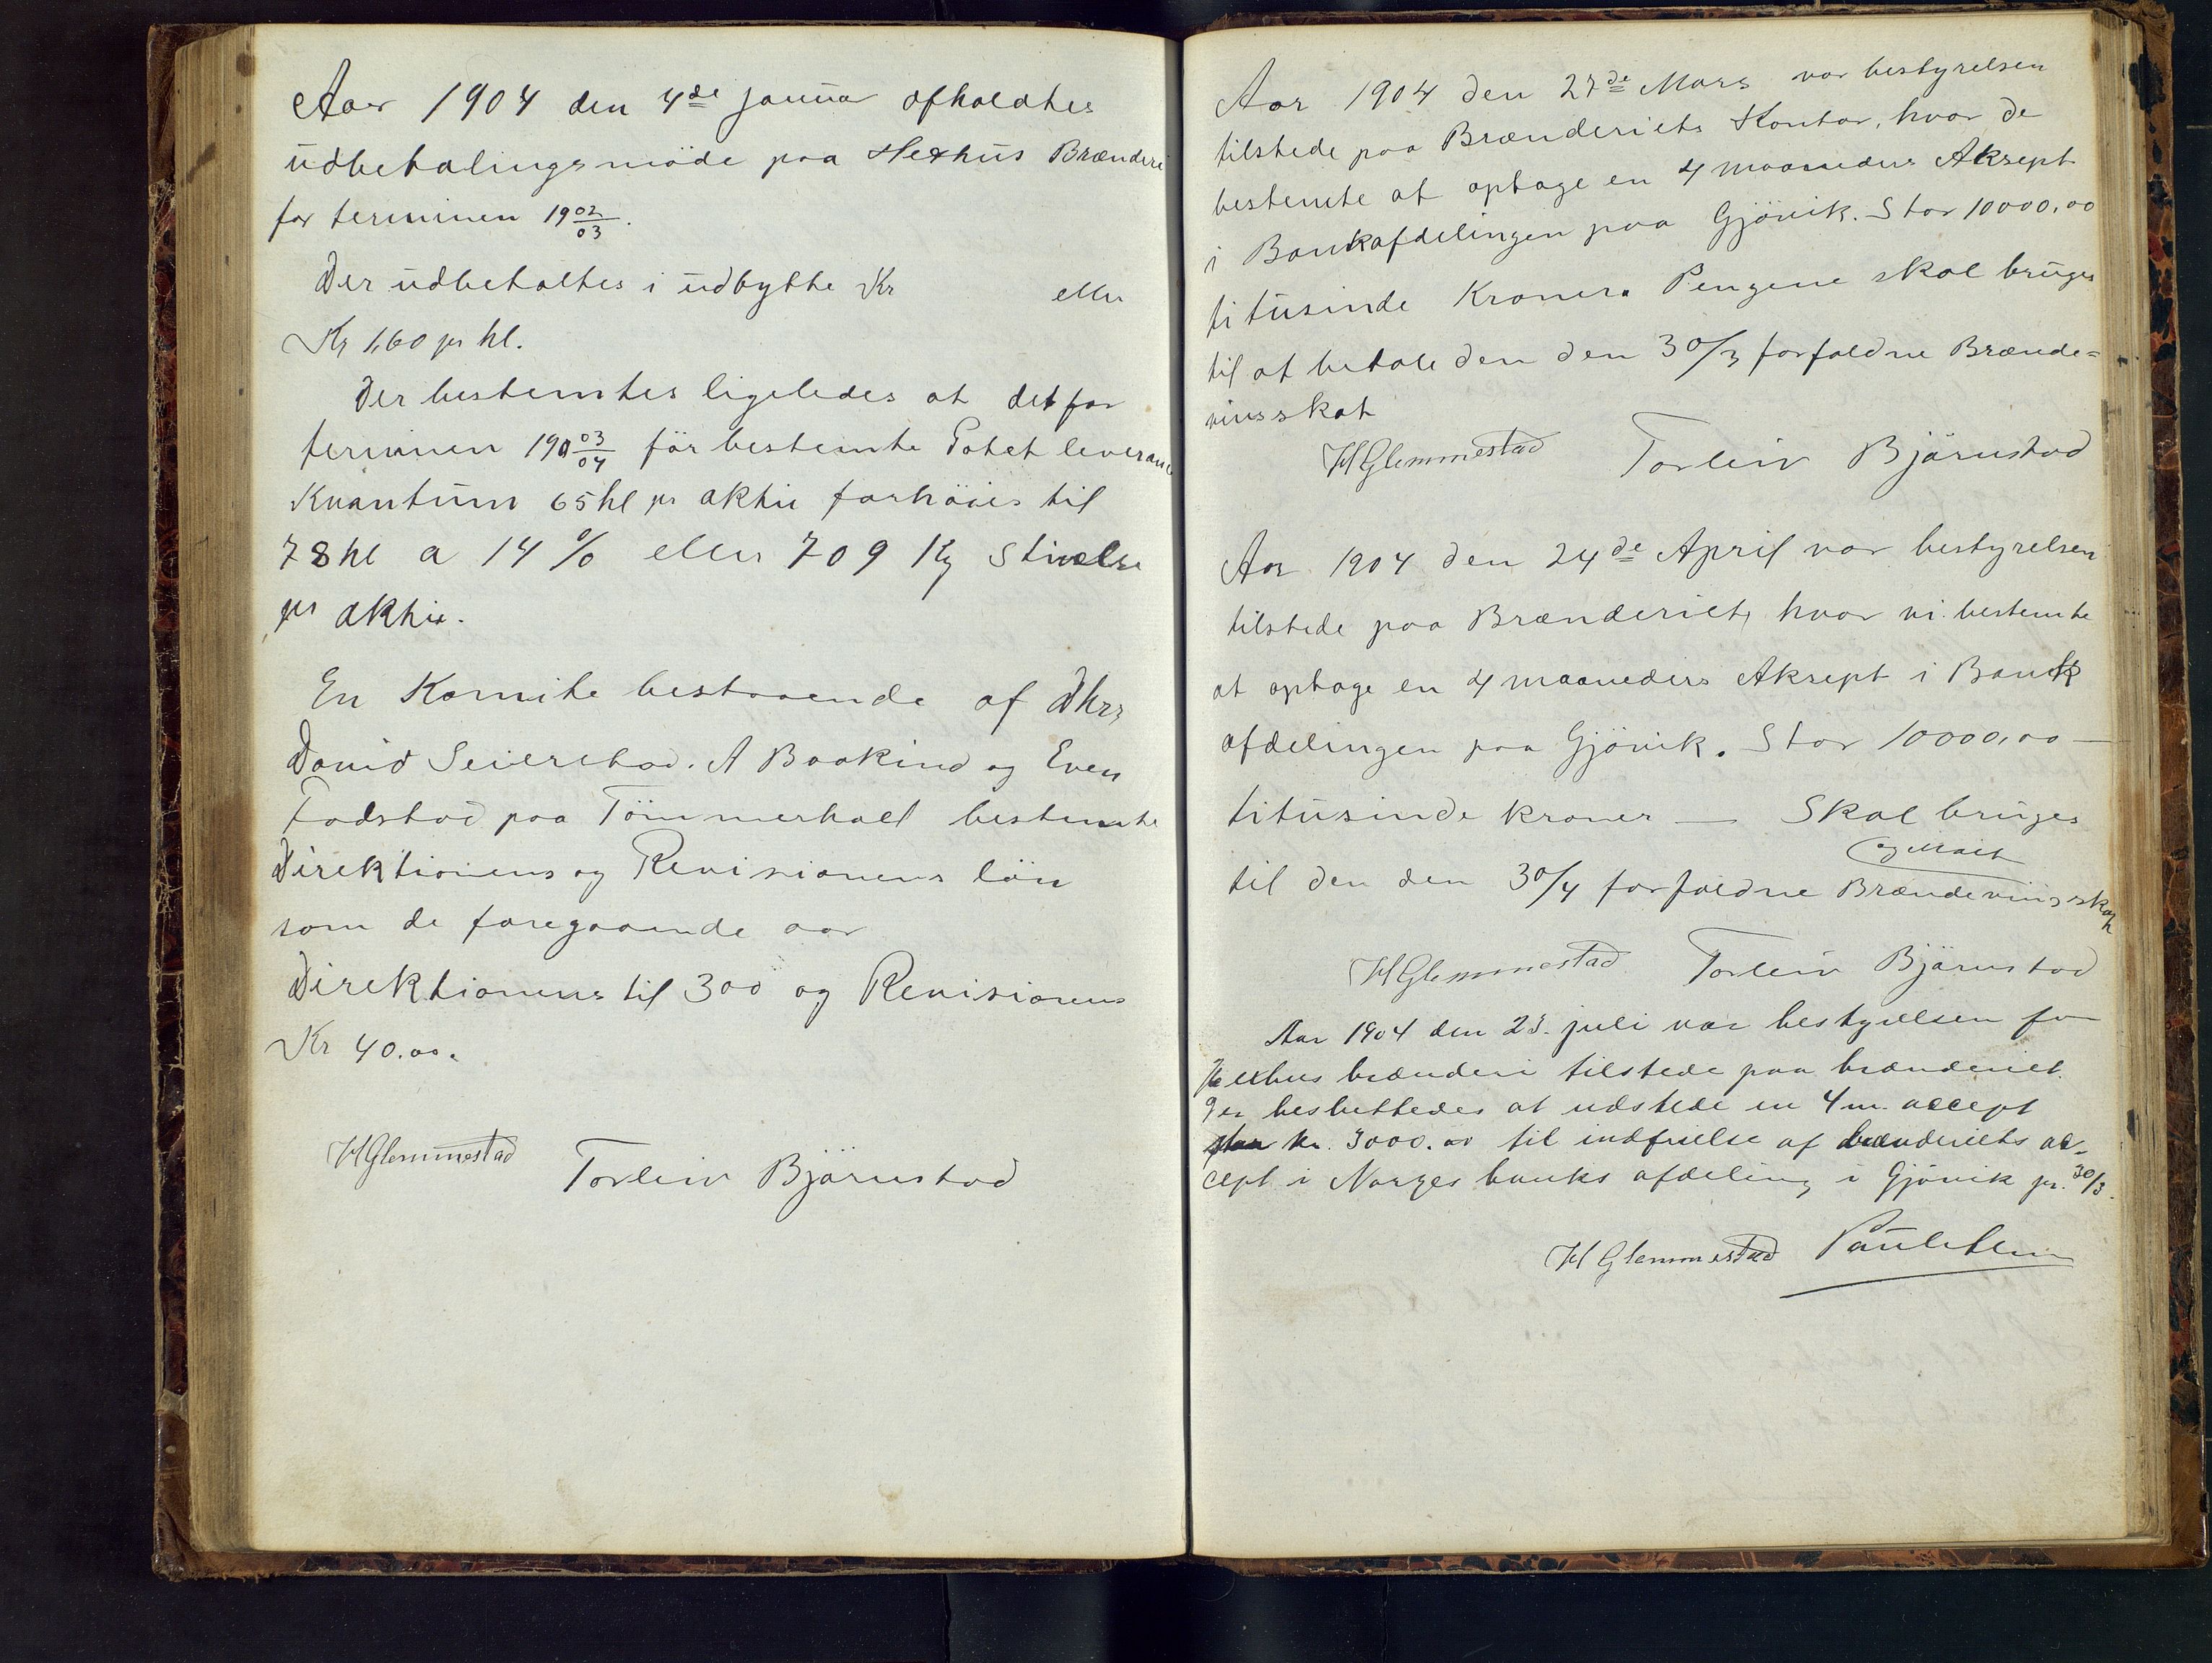 Aar 1904 den 4de januar afholdtes
udbetalingsmöde paa Hexhus Brænderi
for terminen 1902/03.
Der udbetaltes i udbytte Kr eller
Kr 1,60 pr hl.
Der bestemtes ligeledes at det for
terminen 1903/04 før bestemte Potet leverance
Kvantum 65 hl pr aktie forhöies til
78 hl a 14 % eller 709 Kg Stivelse
pr aktie.
En Komite bestaaende af Dhrr
David Seierstad. A Baakind og Even
Fodstad paa Tömmerhall bestemte
Direktionens og Revisionens lön
som de foregaaende aar
Direktionens til 300 og Revisionens
Kr 40.00.
H Glemmestad Torleiv Björnstad
Aar 1904 den 27de Mars var bestyrelsen
tilstede paa Brænderiets Kontor, hvor de
bestemte at optage en 4 maaneders Aksept
i Bankafdelingen paa Gjövik. Stor 10000,00
titusinde Kroner. Pengene skal bruges
til at betale den den 30/3 forfaldne Brænde=
vinsskat
H Glemmestad Torleiv Björnstad
Aar 1904 den 24de April var bestyrelsen
tilstede paa Brænderiet, hvor vi bestemte
at optage en 4 maaneders Aksept i Bank
afdelingen paa Gjövik. Stor 10000,00 —
titusinde kroner — Skal bruges
og Malt
til den den 30/4 forfaldne Brændevinsskat
H Glemmestad Torleiv Björnstad
Aar 1904 den 23. juli var bestyrelsen for
Hexhus brænderi tilstede paa brænderiet.
Der besluttedes at udstede en 4 m. accept
stor kr. 3000.00 til indfrielse af brænderiets ac-
cept i Norges banks afdeling i Gjövik pr. 30/3.
H Glemmestad